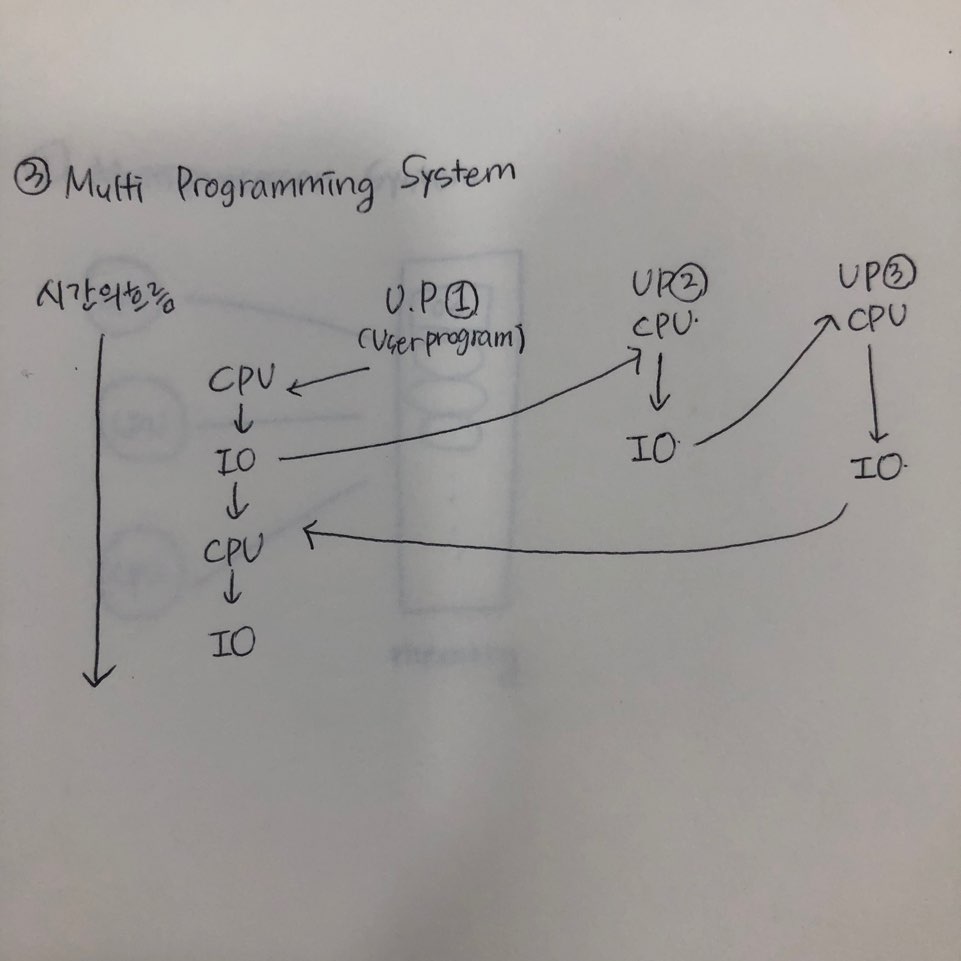 ③ Multi Programming System
시간의흐름
U.P ①
(Userprogram)
CPU
IO
CPU
IO
UP②
CPU
IO
UP③
CPU
IO